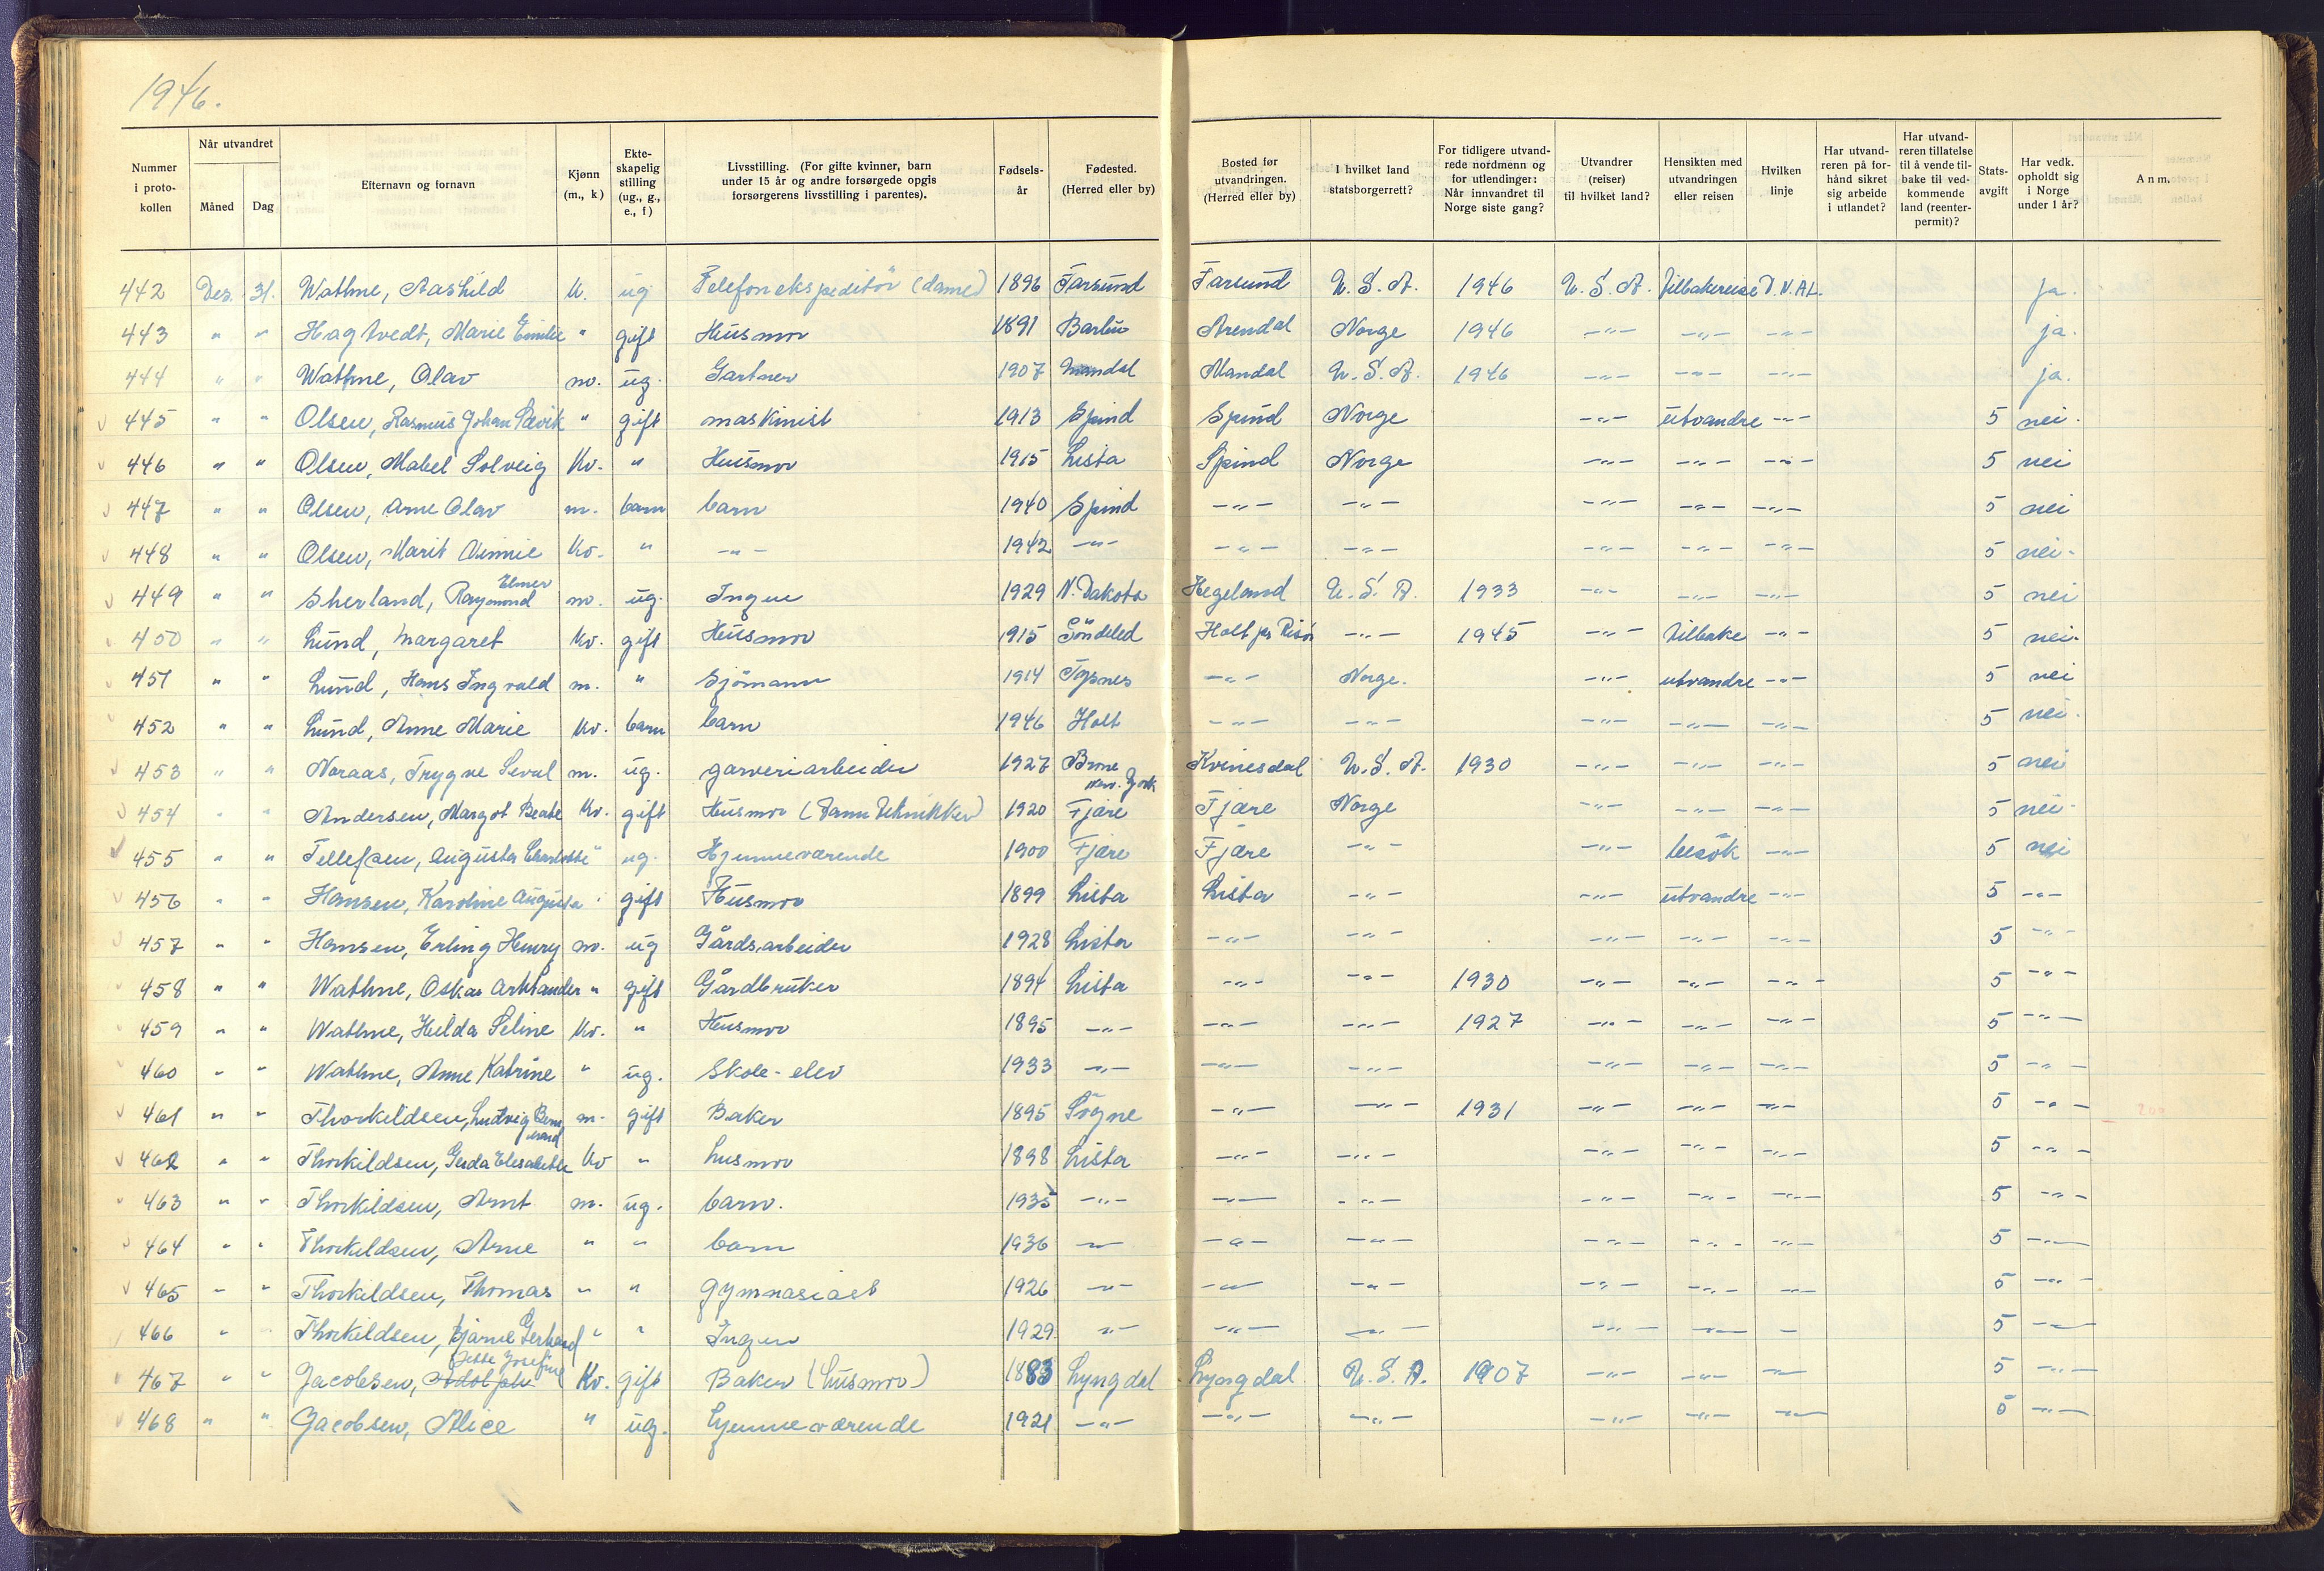 1946.
Nummer i proto- kollen | Når utvandret | Måned | Dag | Efternavn og fornavn | Kjønn (m., k) | Ekte- skapelig stilling (ug., g., e., f) | Livsstilling. (For gifte kvinner, barn under 15 år og andre forsørgede opgis forsørgerens livsstilling i parentes). | Fødsels- år | Fødested. (Herred eller by) | Bosted før utvandringen. (Herred eller by) | I hvilket land statsborgerrett? | For tidligere utvand- rede nordmenn og for utlendinger: Når innvandret til Norge siste gang? | Utvandrer (reiser) til hvilket land? | Hensikten med utvandringen eller reisen | Hvilken linje | Har utvand- reren på for- hånd sikret sig arbeide i utlandet? | Har utvand- reren tillatelse til å vende til- bake til ved- kommende land (reenter- permit)? | Stats- avgift | Har vedk. opholdt sig i Norge under 1 år? | Anm.
442 Des. 31. Wathne, Aashild k. ug Telefonekspeditör (dame) 1896 Farsund Farsund U.S.A. 1946 U.S.A. tilbakereise D.N.A.L. ja.
443 " " Hagtvedt, Marie Emilie " gift Husmor 1891 Barbu Arendal Norge 1946 -"- -"- -"- ja.
444 " " Wathne, Olav m. ug. Gartner 1907 Mandal Mandal U.S.A. 1946 -"- -"- -"- ja.
445 " " Olsen, Rasmus Johan " gift maskinist 1913 Spind Spind Norge -"- utvandre -"- 5 nei.
446 " " Olsen, Mabel Solveig Kv. " Husmor 1915 Lista Spind Norge -"- -"- -"- 5 nei
447 " " Olsen, Arne Olav m. barn barn 1940 Spind -"- -"- -"- -"- -"- 5 nei
448 " " Olsen, Marit Kv. " -"- 1942 -"- -"- -"- -"- -"- -"- 5 nei.
449 " " Sherland, Raymond Elmer m. ug. Ingen 1929 N. Dakota Hegeland U.S.A. 1933 -"- -"- -"- 5 nei
450 " " Lund, Margaret Kv. gift Husmor 1915 Söndeled Holt pr Risör -"- 1945 -"- tilbake -"- 5 nei.
451 " " Lund, Hans Ingvald m. " Sjömann 1914 Tysnes -"- Norge. -"- utvandre -"- 5 nei
452 " " Lund, Anne Marie Kv. barn barn 1946 Holt -"- -"- -"- -"- -"- 5 nei.
453 " " Noraas, Trygve Seval m. ug. garveriarbeider 1927 New York Kvinesdal U.S.A. 1930 -"- -"- -"- 5 nei
454 " " Andersen, Margot Beate Kv. gift Husmor (Tanntekniker) 1920 Fjære Fjære Norge -"- -"- -"- 5 nei
455 " " Tellefsen, Augusta Charlotte " ug. Hjemmeværende 1900 Fjære Fjære -"- -"- besök -"- 5 nei
456 " " Hansen, Karoline Augusta " gift Husmor 1899 Lista Lista -"- -"- utvandre -"- 5 -"-
457 " " Hansen, Erling Henry m. ug Gårdsarbeider 1928 Lista -"- -"- -"- -"- -"- 5 -"-
458 " " Wathne, Oskar Arktander " gift Gårdbruker 1894 Lista -"- -"- 1930 -"- -"- -"- 5 -"-
459 " " Wathne, Hilda Seline Kv. " Husmor 1895 -"- -"- -"- 1927 -"- -"- -"- 5 -"-
460 " " Wathne, Anne Katrine " ug. Skole-elev 1933 -"- -"- -"- -"- -"- -"- 5 -"-
461 " " Thorkildsen, Ludvig m. gift Baker 1895 Sögne -"- -"- 1931 -"- -"- -"- 5 -"-
462 " " Thorkildsen, Gerda Elisabeth Kv " husmor 1898 Lista -"- -"- -"- -"- -"- 5 -"-
463 " " Thorkildsen, Arnt m. ug. barn. 1935 -"- -"- -"- -"- -"- -"- 5 -"-
464 " " Thorkildsen, Arne " " barn 1936 -"- -"- -"- -"- -"- -"- 5 -"-
465 " " Thorkildsen, Thomas " " gymnasiast 1926 -"- -"- -"- -"- -"- -"- 5 -"-
466 " " Thorkildsen, Bjarne Gerhard " " Ingen 1929 -"- -"- -"- -"- -"- - 5 -"-
467 " " Jacobsen, Adolph Josefine Kv. gift Baker (husmor) 1883 Lyngdal Lyngdal U.S.A. 1907 -"- -"- -"- 5 -"-
468 " " Jacobsen, Alice " ug. hjemmeværende 1921 -"- -"- -"- -"- -"- -"- 5 -"-